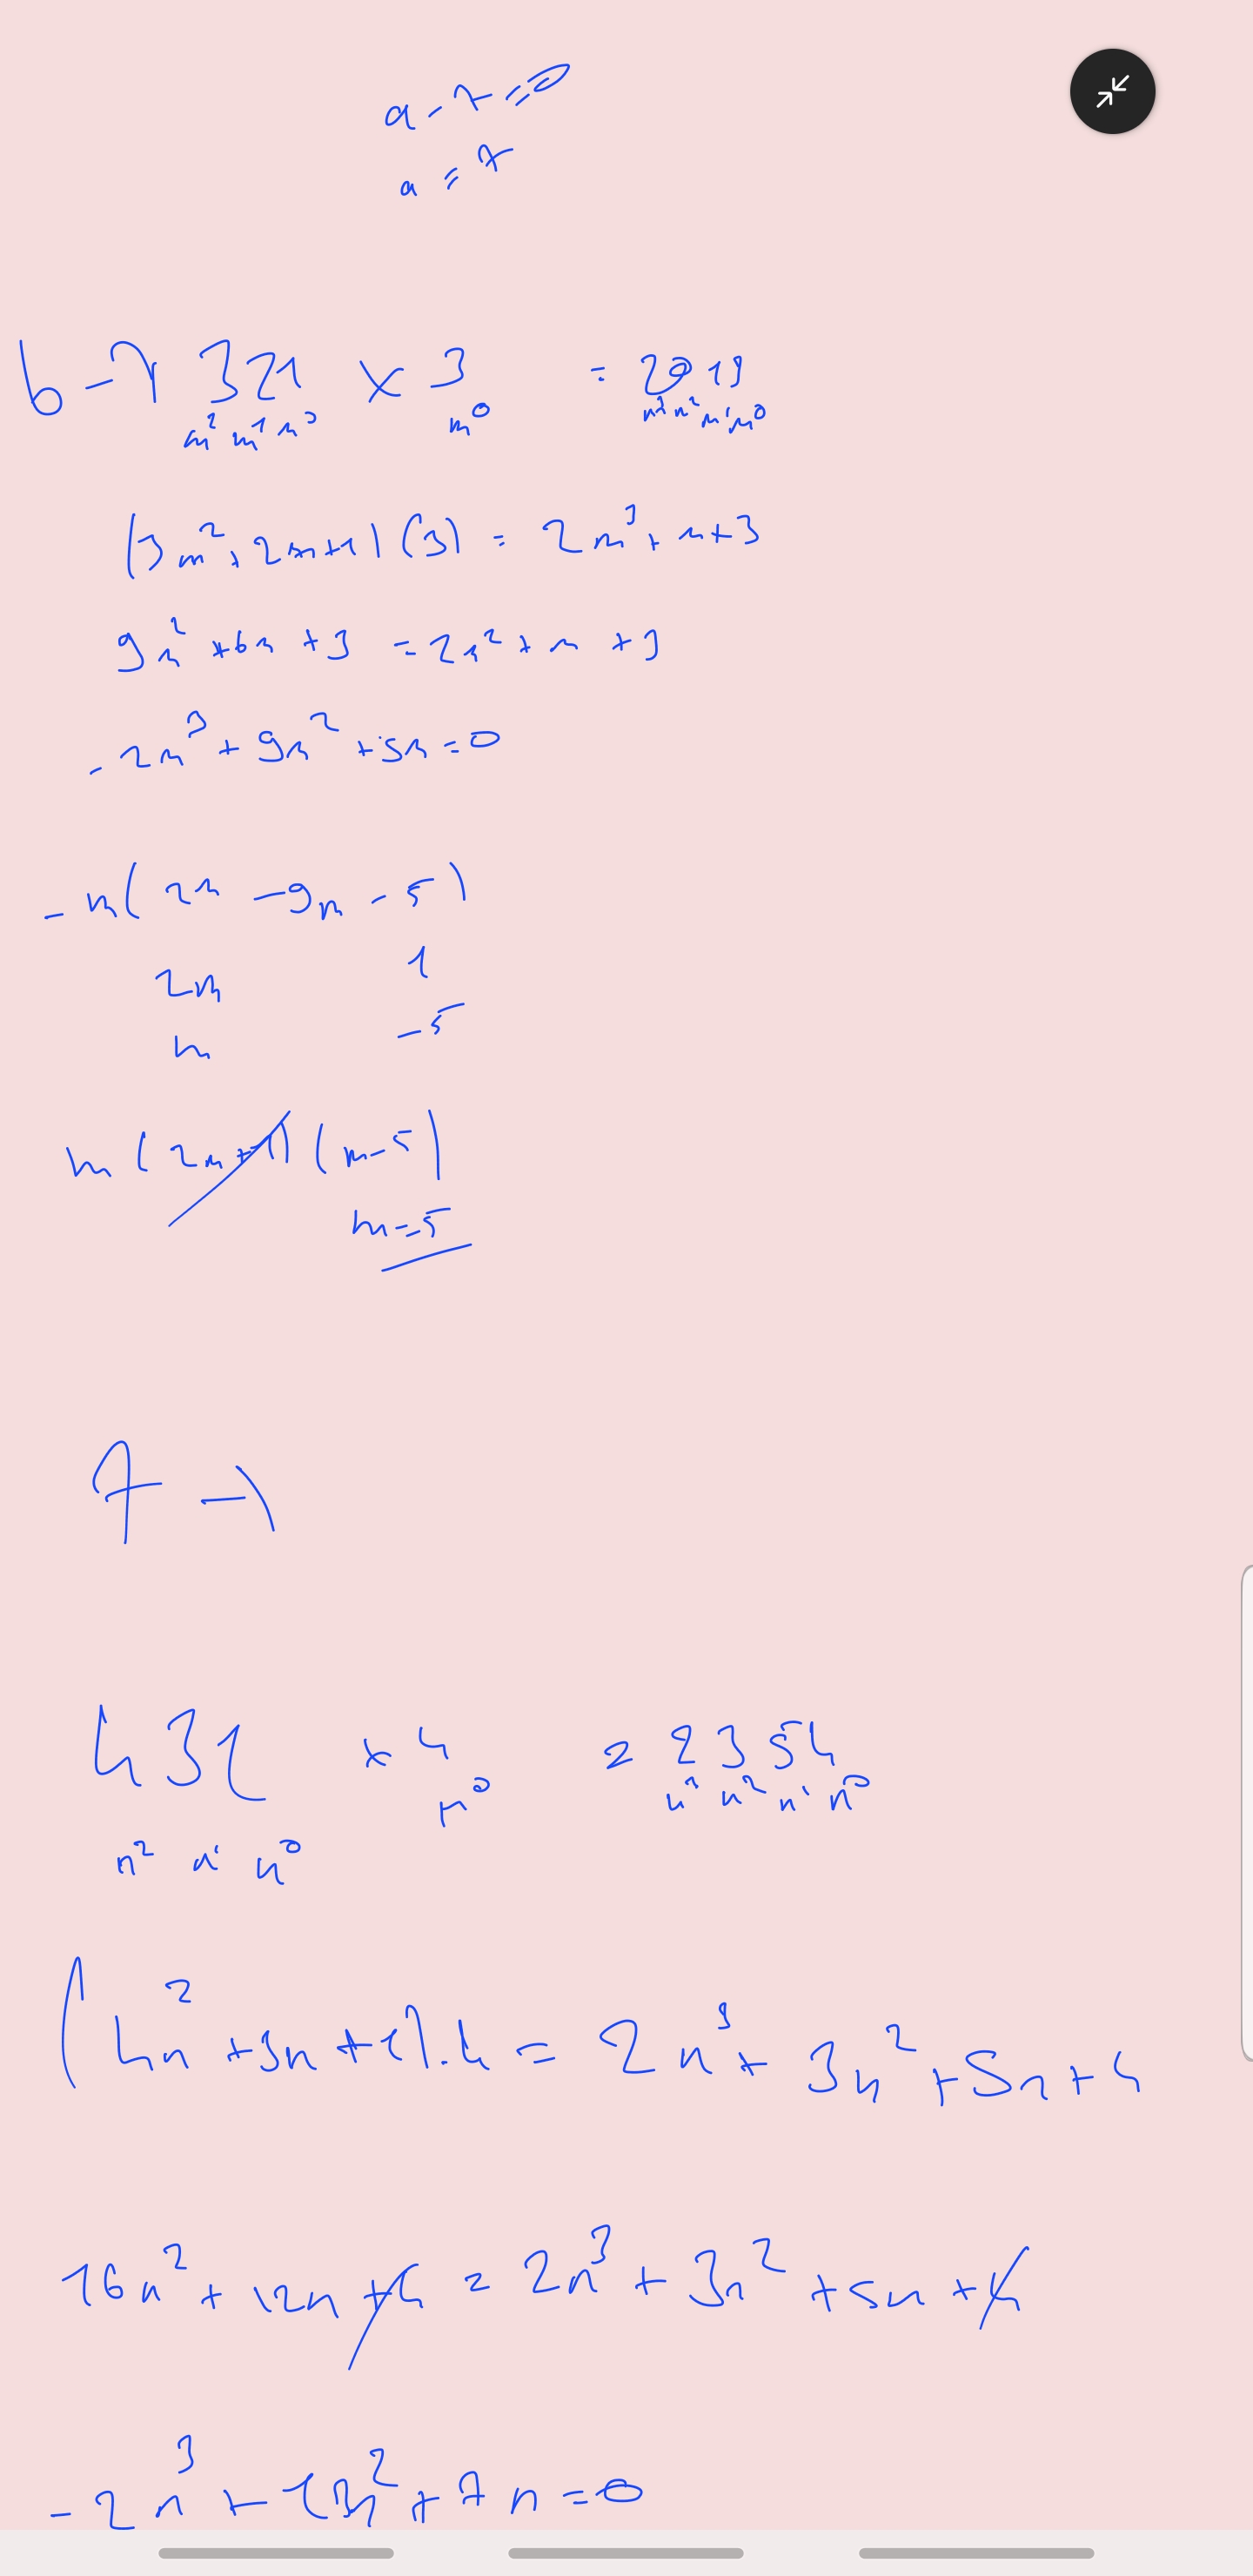 a - 7 = 0
a = 7
6 → 321 × 3 = 2013
m² m¹ m⁰ m⁰ m³ m² m¹ m⁰
(3m² + 2m + 1) (3) = 2m³ + m + 3
9m² + 6m + 3 = 2m² + m + 3
- 2m³ + 9m² + 5m = 0
- m ( 2m - 9m - 5 )
2m 1
m -5
m (2m + 1) (m - 5)
m = 5
7 →
431 × 4 = 2354
n⁰ n³ n² n¹ n⁰
n² n¹ n⁰
(4n² + 3n + 1) . 4 = 2n³ + 3n² + 5n + 4
16n² + 12n + 4 = 2n³ + 3n² + 5n + 4
- 2n³ + 13n² + 7n = 0